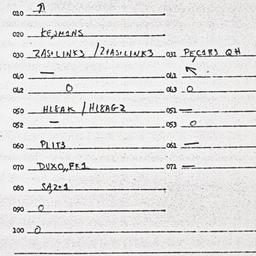 010
020 KEJMANS
030 ZAS+LINKS / Z+AS+LINKS 031 PEC183 QH
0L0 — 0L1
0L2 0 0L3 0
050 HL8AK / HL8AG2 051 —
052 — 053 0
060 PLIT3 061 —
070 DUXO,,FR1 071 —
080 SA,2+1
090 0
100 0